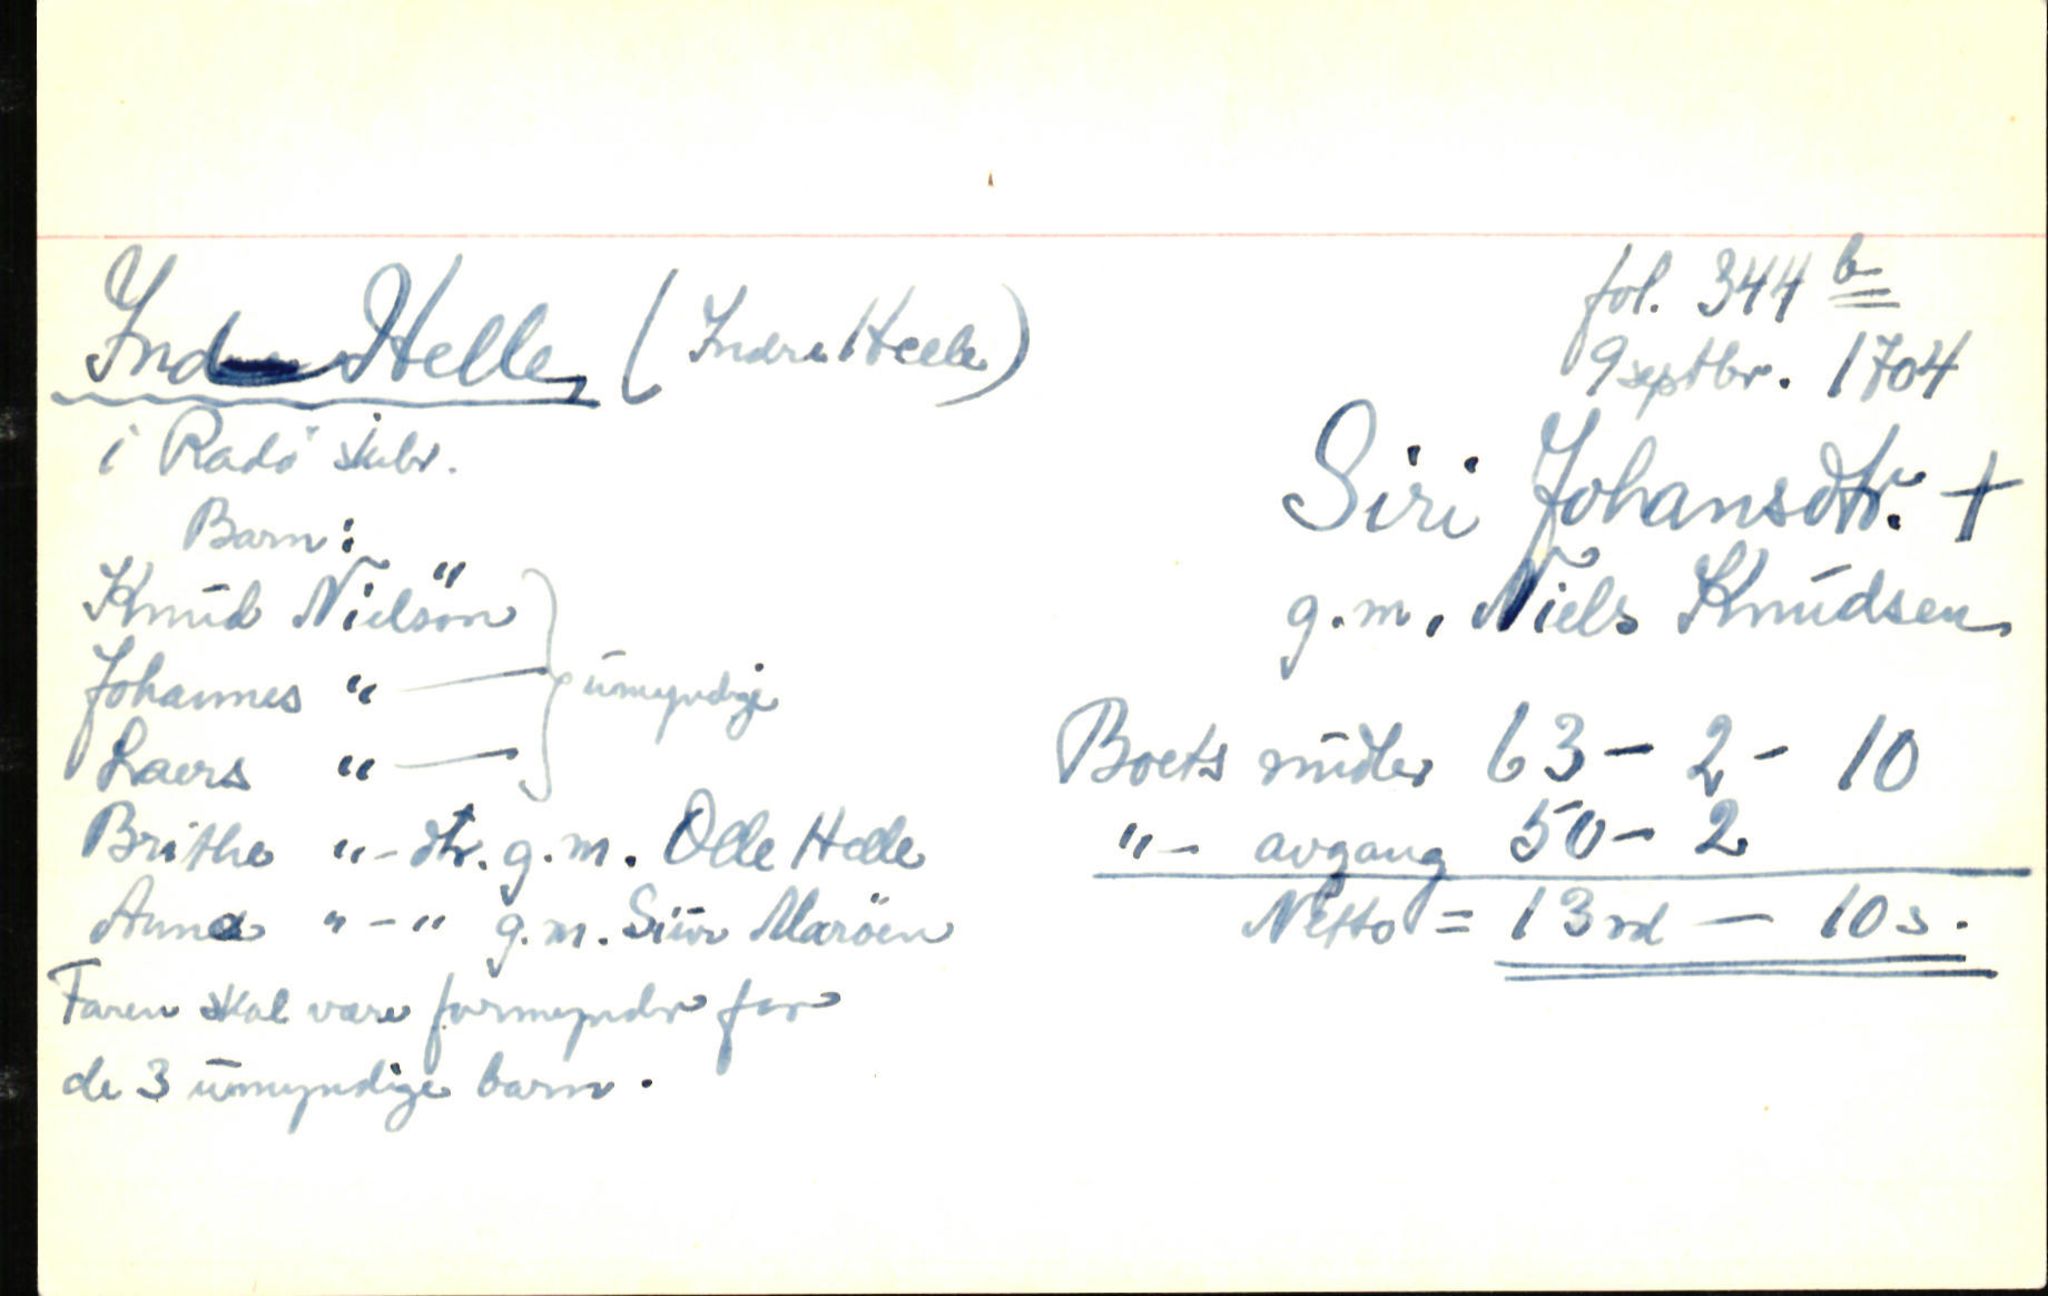 Indre Helle (Indre Helle)
i Radö skbr.
Barn:
Knud Nielsön
Johannes " — umyndige
Laers " —
Brithe "- dtr. g.m. Olle Helle
Anna " - " g.m. Siur Maröen
Faren skal være formynder for
de 3 umyndige barn.
fol. 344 b
9 septbr. 1704
Siri Johansdtr. +
g.m. Niels Knudsen
Boets midler 63 - 2 - 10
"- avgang 50 - 2
Netto = 13 rd — 10 s.